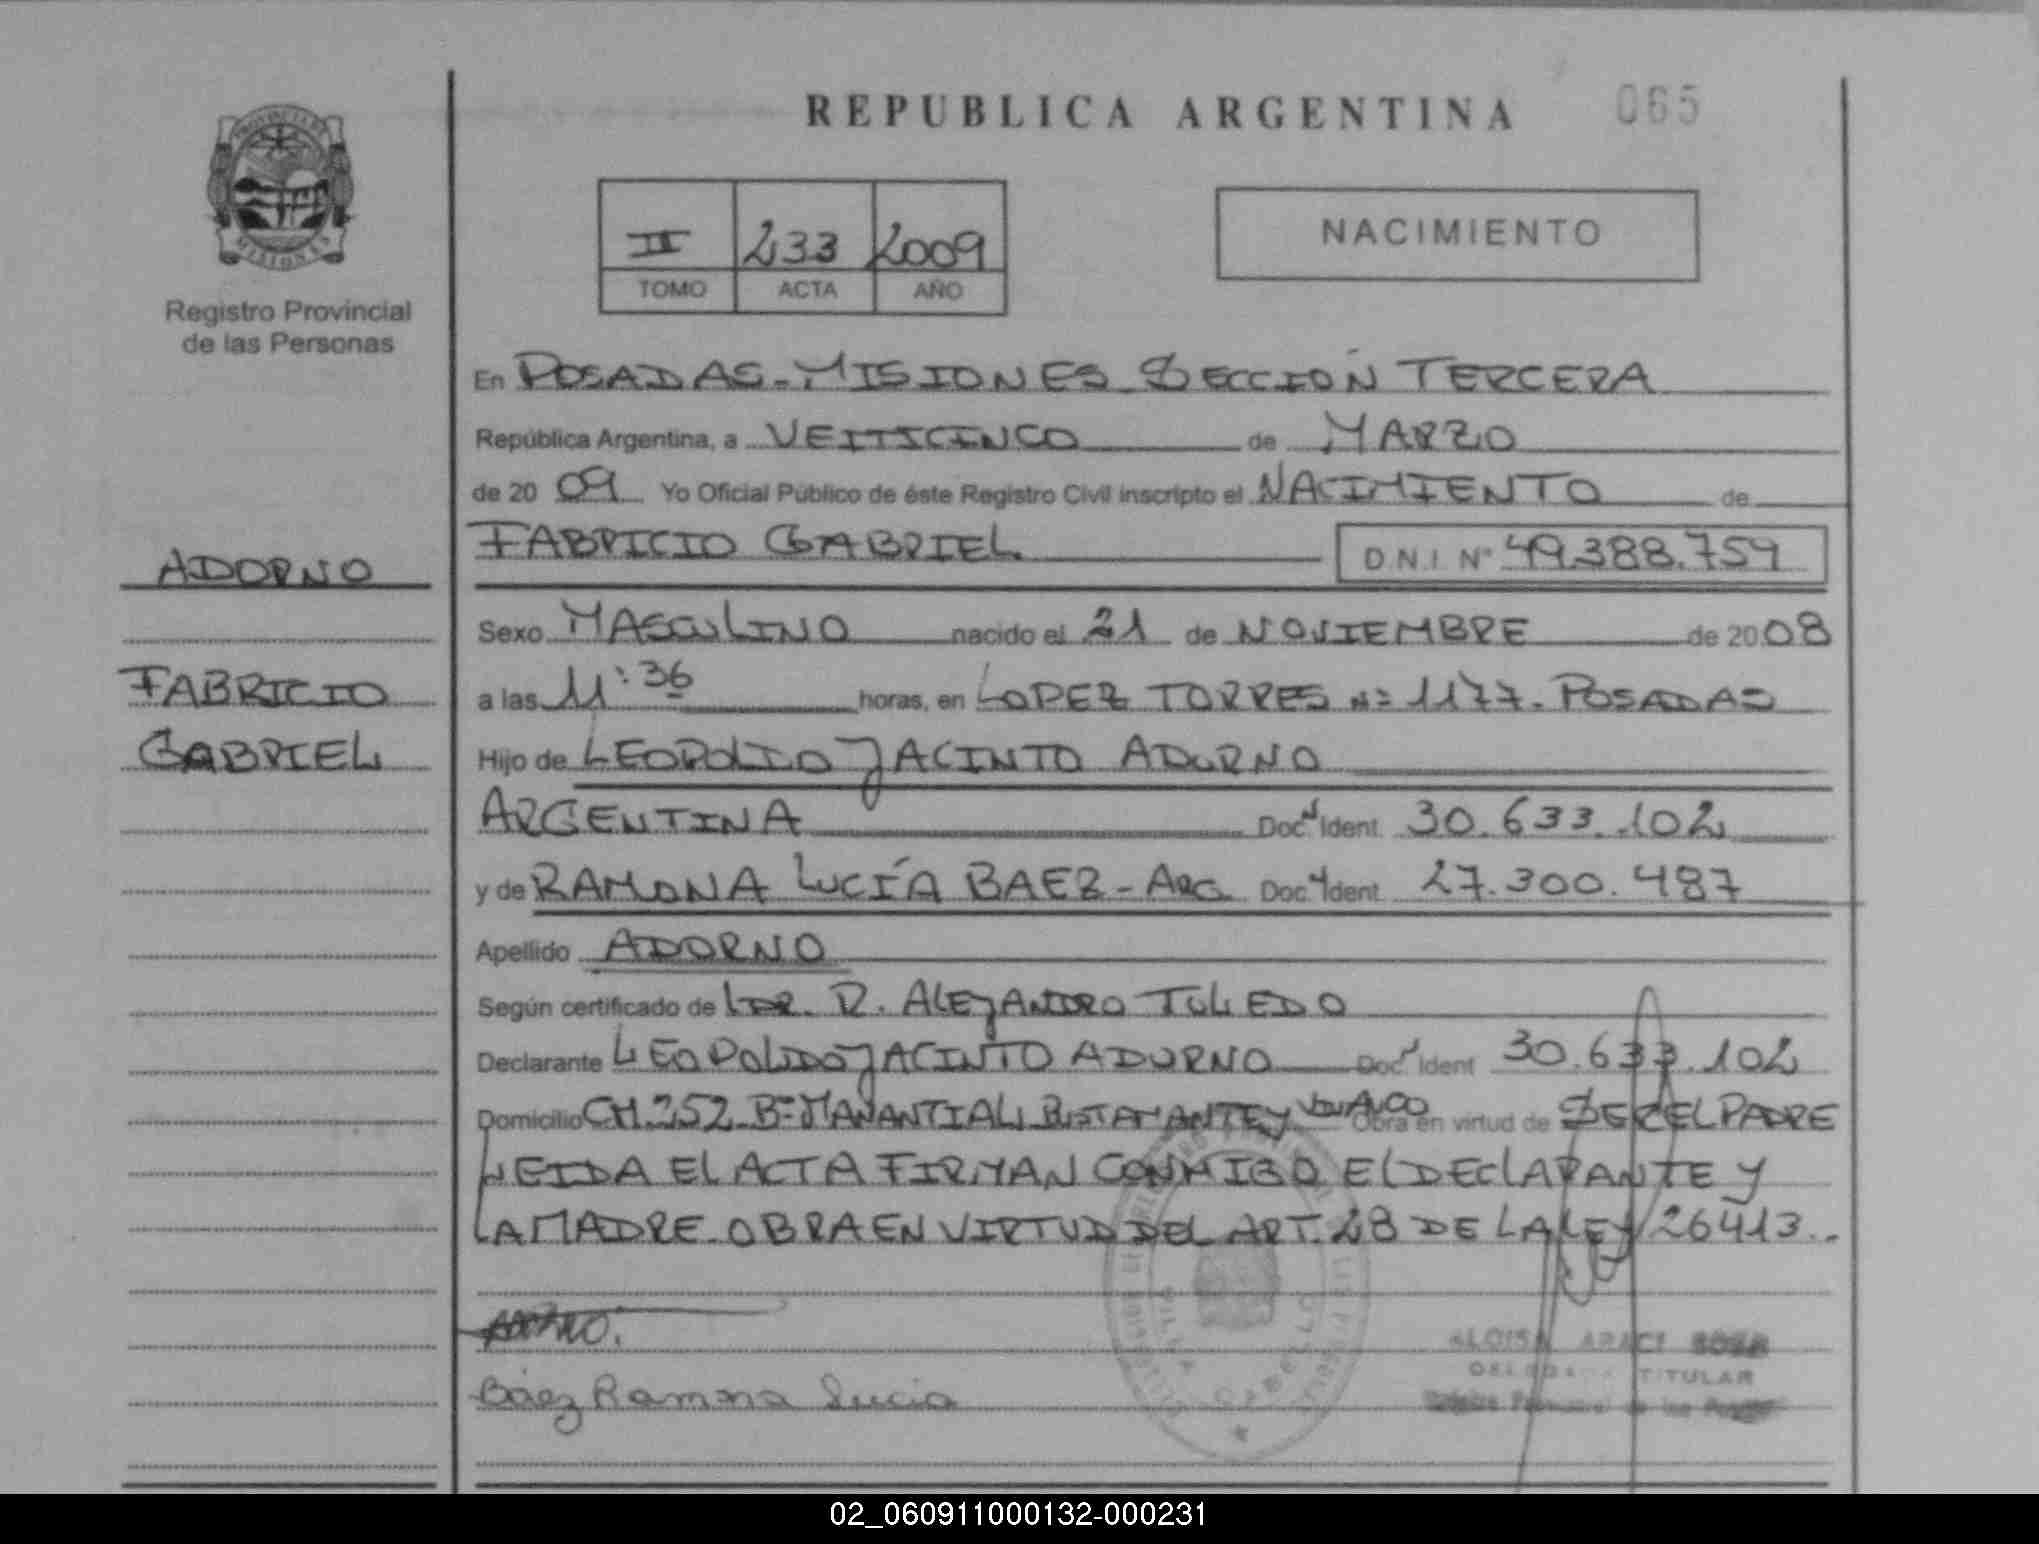 REPUBLICA ARGENTINA
065
PROVINCIA DE
MISIONES
Registro Provincial
de las Personas
II 233 2009
TOMO ACTA AÑO
NACIMIENTO
En POSADAS-MISIONES SECCIÓN TERCERA
República Argentina, a VEITICINCO de MARZO
de 20 09 Yo Oficial Público de éste Registro Civil inscripto el NACIMIENTO de
FABRICIO GABRIEL D.N.I. Nº 49.388.759
ADORNO
FABRICIO
GABRIEL
Sexo MASCULINO nacido el 21 de NOVIEMBRE de 2008
a las 11:36 horas, en LOPEZ TORRES Nº 1177. POSADAS
Hijo de LEOPOLDO JACINTO ADORNO
ARGENTINA Doc. Ident. 30.633.102
y de RAMONA LUCÍA BAEZ - ARG. Doc. Ident. 27.300.487
Apellido ADORNO
Según certificado de DR. R. ALEJANDRO TOLEDO
Declarante LEOPOLDO JACINTO ADORNO Doc. Ident. 30.633.102
Domicilio CH.252 Bº MANANTIAL BUSTAMANTE y Obra en virtud de SER EL PADRE
LEIDA EL ACTA FIRMAN CONMIGO EL DECLARANTE Y
LA MADRE. OBRA EN VIRTUD DEL ART. 28 DE LA LEY 26413..
Báez Ramona Lucia
ALOISA ARACI SOSA
DELEGADA TITULAR
02_060911000132-000231